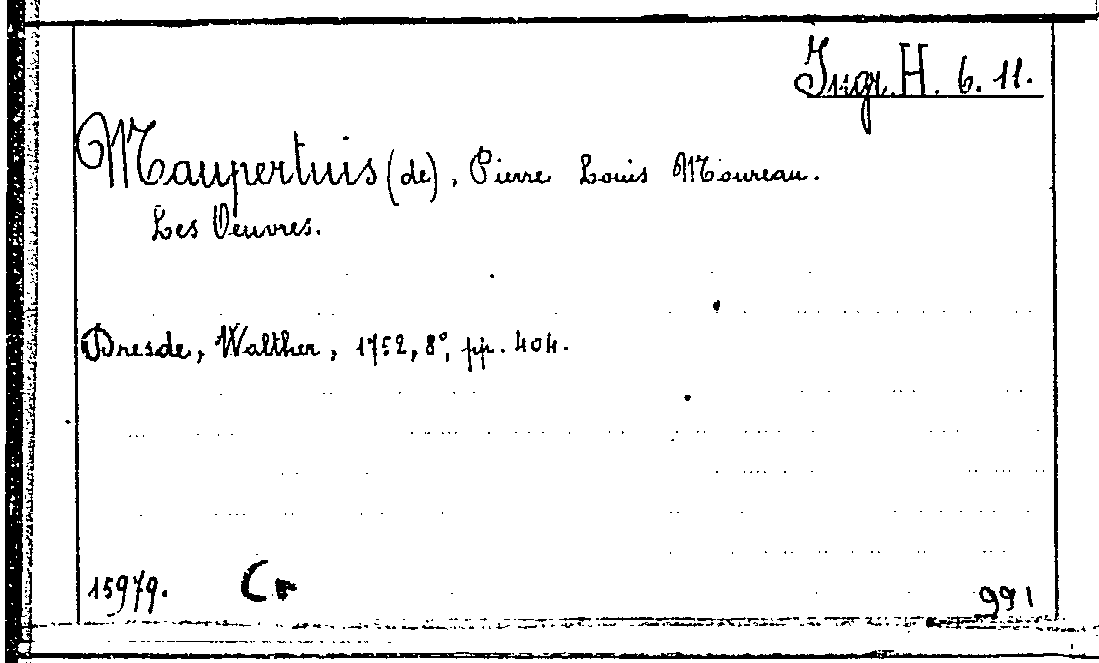 Ingr. H. 6. 11.
Maupertuis (de), Pierre Louis Moureau.
Les Oeuvres.
Dresde, Walther, 1752, 8°, pp. 404.
15979. Cr 991